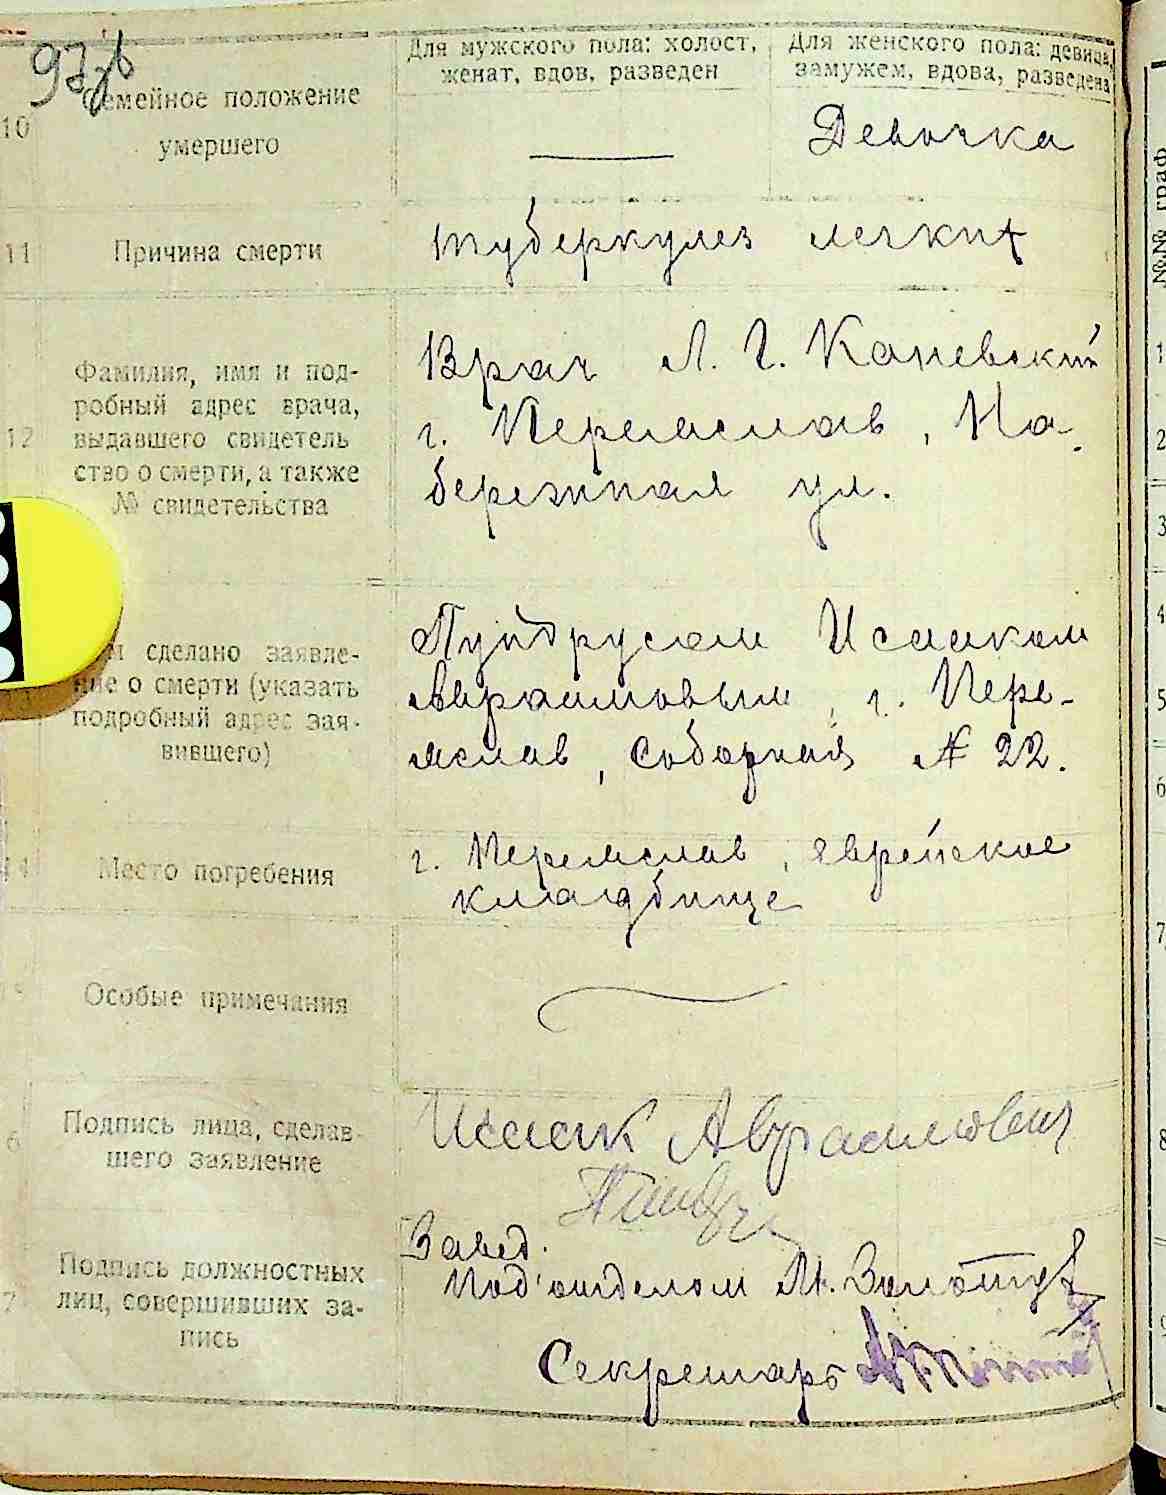 97об
Для мужского пола: холост,
женат, вдов, разведен
Для женского пола: девица,
замужем, вдова, разведена
10
Семейное положение
умершего
Девочка
11
Причина смерти
туберкулез легких
12
Фамилия, имя и под-
робный адрес врача,
выдавшего свидетель
ство о смерти, а также
№ свидетельства
Врач Л. Г. Каневский
г. Переяслав, На-
бережная ул.
сделано заявле-
ние о смерти (указать
подробный адрес зая-
вившего)
Исааком
Авраамовым, г. Пере-
яслав, Соборная № 22.
14
Место погребения
г. Переяслав, еврейское
кладбище
Особые примечания
6
Подпись лица, сделав-
шего заявление
Исаак Авраамович
7
Подпись должностных
лиц, совершивших за-
пись
Завед.
Под'отделом М.
Секретарь
№№ граф
1
2
3
4
5
6
7
8